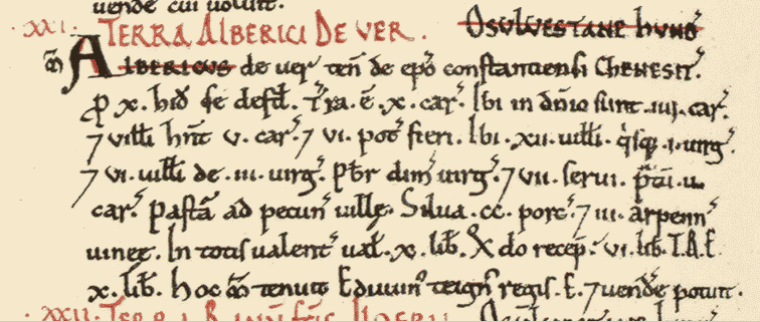 uende cui uoluit.
.XXI. TERRA ALBERICI DE VER. OSULVESTANE HUND'
ALBERICUS de uer ten̄ de ep̄o constantiensi CHENESIT'.
p̱ x. hid' se defd̄. T'ra. ē .x. car'. Ibi in dn̄io sunt .iiii. car'.
⁊ uilƚi hn̄t v. car' ⁊ vi. pot' fieri. Ibi .xii. uilƚi. q'sq; .i. uirg'.
⁊ vi. uilƚi de .iii. uirg'. Pb̄r dim' uirg'. ⁊ vii. serui. p̄ti .ii.
car'. pastā ad pecun' uillę. Silua .cc. porc'. ⁊ iii. arpenn'
uineę. In totis ualent' ual̄. x. lib̄. Q̇do recep̄. vi. lib̄. T.R.E.
x. lib̄. hoc m̄ tenuit Eduuin' teign' regis .E. ⁊ uend'e potuit.
.XXII. TERRA